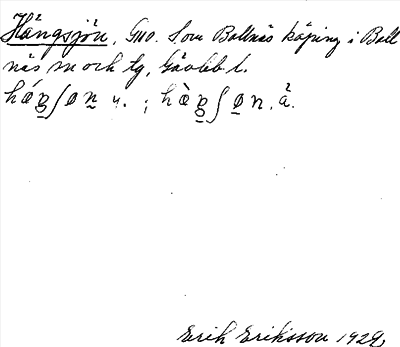 Hängsjön, Gno. Som Bollnäs köping i Boll
näs sn och tg, Gävlebl.
hǽŋʃøn y. ; hæ̀ŋʃøn. ä.
Erik Eriksson 1929